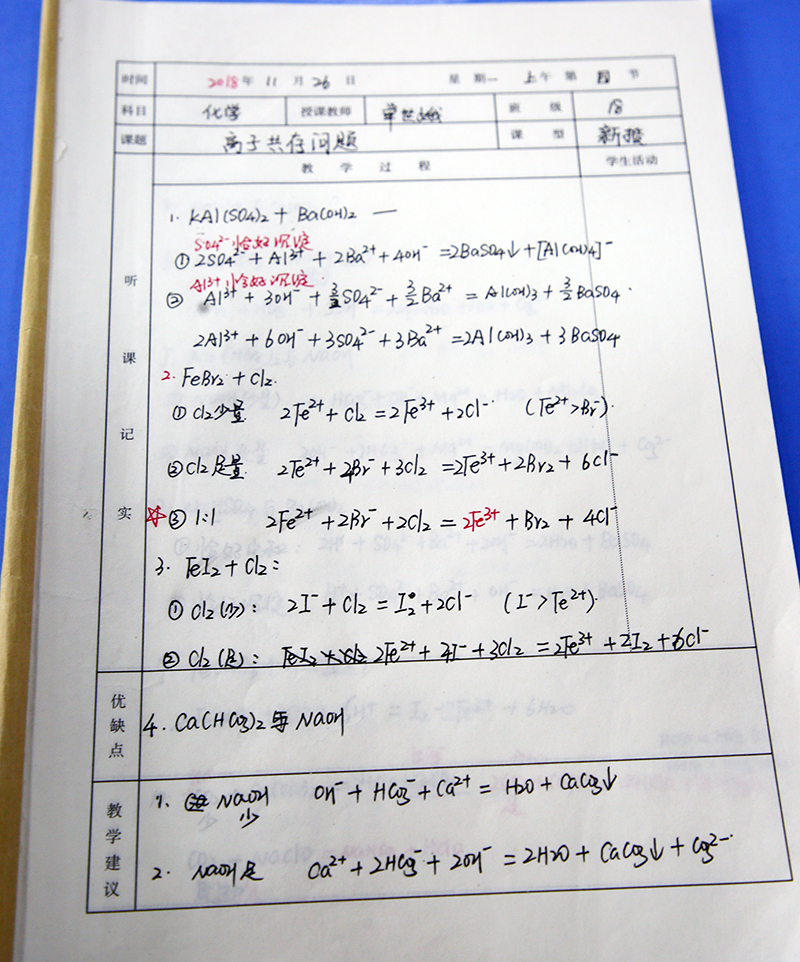 时间 2018年 11 月 26 日 星 期一 上午 第 四 节
科目 化学 授课教师 单 班 级 18
课题 离子共存问题 课 型 新授
教 学 过 程 学生活动
听课记实
1. KAl(SO4)2 + Ba(OH)2 —
SO4²⁻恰好沉淀
① 2SO4²⁻ + Al³⁺ + 2Ba²⁺ + 4OH⁻ = 2BaSO4↓ + [Al(OH)4]⁻
Al³⁺恰好沉淀
② Al³⁺ + 3OH⁻ + 3/2SO4²⁻ + 3/2Ba²⁺ = Al(OH)3 + 3/2BaSO4
2Al³⁺ + 6OH⁻ + 3SO4²⁻ + 3Ba²⁺ = 2Al(OH)3 + 3BaSO4
2. FeBr2 + Cl2
① Cl2少量 2Fe²⁺ + Cl2 = 2Fe³⁺ + 2Cl⁻ (Fe²⁺>Br⁻)
② Cl2足量 2Fe²⁺ + 4Br⁻ + 3Cl2 = 2Fe³⁺ + 2Br2 + 6Cl⁻
☆③ 1:1 2Fe²⁺ + 2Br⁻ + 2Cl2 = 2Fe³⁺ + Br2 + 4Cl⁻
3. FeI2 + Cl2:
① Cl2(少): 2I⁻ + Cl2 = I2 + 2Cl⁻ (I⁻>Fe²⁺)
② Cl2(足): FeI2 + Cl2 2Fe²⁺ + 4I⁻ + 3Cl2 = 2Fe³⁺ + 2I2 + 6Cl⁻
优缺点
4. Ca(HCO3)2与NaOH
教学建议
1. NaOH少 OH⁻ + HCO3⁻ + Ca²⁺ = H2O + CaCO3↓
2. NaOH足 Ca²⁺ + 2HCO3⁻ + 2OH⁻ = 2H2O + CaCO3↓ + CO3²⁻